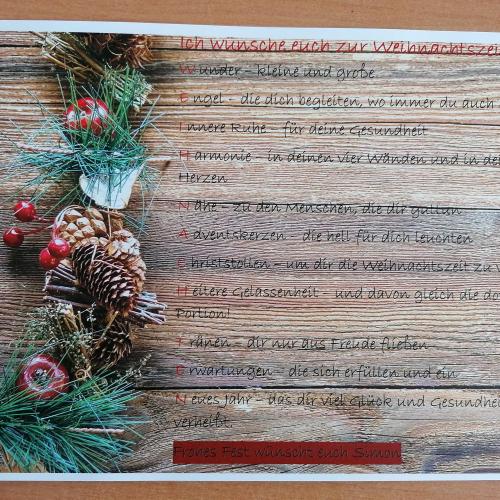 Ich wünsche euch zur Weihnachtszei
Wunder – kleine und große
Engel – die dich begleiten, wo immer du auch
Innere Ruhe – für deine Gesundheit
Harmonie – in deinen vier Wänden und in de
Herzen
Nähe – zu den Menschen, die dir guttun
Adventskerzen – die hell für dich leuchten
Christstollen – um dir die Weihnachtszeit zu
Heitere Gelassenheit – und davon gleich die do
Portion!
Tränen – dir nur aus Freude fließen
Erwartungen – die sich erfüllen und ein
Neues Jahr – das dir viel Glück und Gesundhei
verheißt.
Frohes Fest wünscht euch Simon